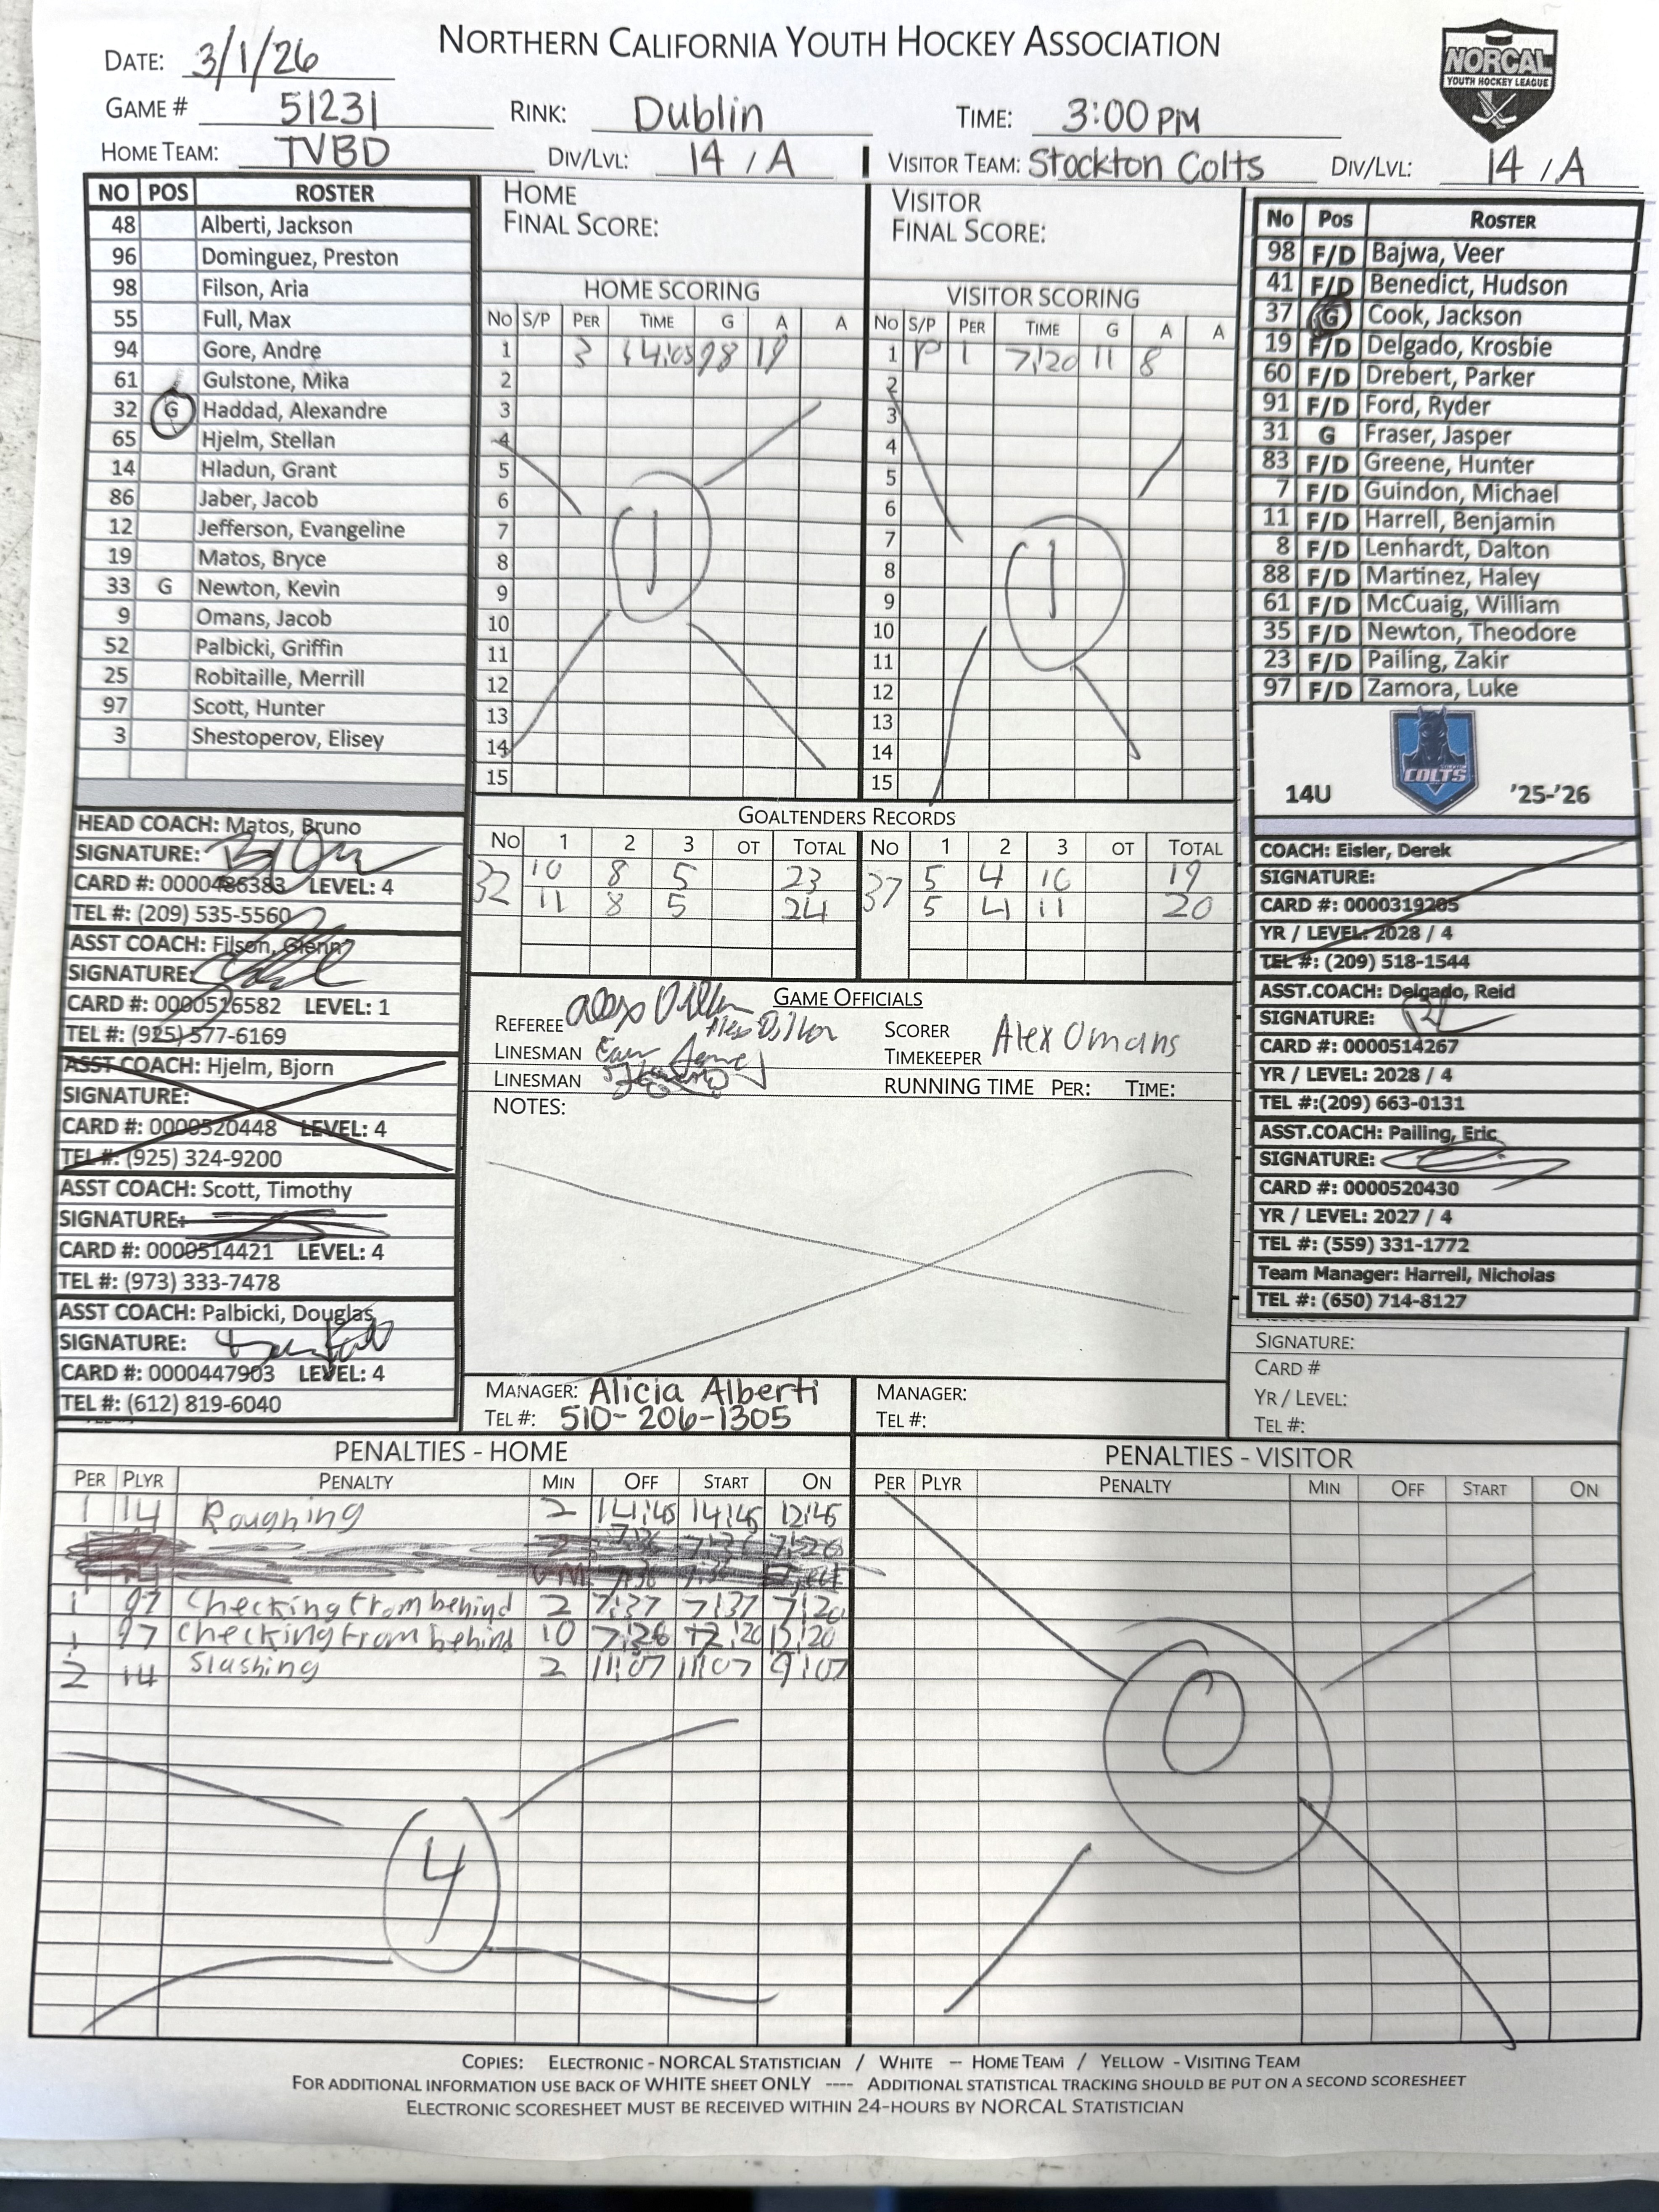 NORTHERN CALIFORNIA YOUTH HOCKEY ASSOCIATION
NORCAL
YOUTH HOCKEY LEAGUE
DATE: 3/1/26
GAME # 51231 RINK: Dublin TIME: 3:00 PM
HOME TEAM: TVBD DIV/LVL: 14 / A VISITOR TEAM: Stockton Colts DIV/LVL: 14 / A
NO POS ROSTER
48 Alberti, Jackson
96 Dominguez, Preston
98 Filson, Aria
55 Full, Max
94 Gore, Andre
61 Gulstone, Mika
32 G Haddad, Alexandre
65 Hjelm, Stellan
14 Hladun, Grant
86 Jaber, Jacob
12 Jefferson, Evangeline
19 Matos, Bryce
33 G Newton, Kevin
9 Omans, Jacob
52 Palbicki, Griffin
25 Robitaille, Merrill
97 Scott, Hunter
3 Shestoperov, Elisey
HEAD COACH: Matos, Bruno
SIGNATURE:
CARD #: 0000486383 LEVEL: 4
TEL #: (209) 535-5560
ASST COACH: Filson, Glenn
SIGNATURE:
CARD #: 0000516582 LEVEL: 1
TEL #: (925) 577-6169
ASST COACH: Hjelm, Bjorn
SIGNATURE:
CARD #: 0000520448 LEVEL: 4
TEL #: (925) 324-9200
ASST COACH: Scott, Timothy
SIGNATURE:
CARD #: 0000514421 LEVEL: 4
TEL #: (973) 333-7478
ASST COACH: Palbicki, Douglas
SIGNATURE:
CARD #: 0000447903 LEVEL: 4
TEL #: (612) 819-6040
HOME
FINAL SCORE:
HOME SCORING
NO S/P PER TIME G A A
1 3 14:03 98 19
2
3
4
5
6
7
8
9
10
11
12
13
14
15
1
VISITOR
FINAL SCORE:
VISITOR SCORING
NO S/P PER TIME G A A
1 P 1 7:20 11 8
2
3
4
5
6
7
8
9
10
11
12
13
14
15
1
GOALTENDERS RECORDS
NO 1 2 3 OT TOTAL NO 1 2 3 OT TOTAL
32 10 8 5 23 37 5 4 10 19
11 8 5 24 5 4 11 20
GAME OFFICIALS
REFEREE Alex Dillon
LINESMAN
LINESMAN
SCORER
TIMEKEEPER Alex Omans
RUNNING TIME PER: TIME:
NOTES:
MANAGER: Alicia Alberti
TEL #: 510-206-1305
MANAGER:
TEL #:
NO POS ROSTER
98 F/D Bajwa, Veer
41 F/D Benedict, Hudson
37 G Cook, Jackson
19 F/D Delgado, Krosbie
60 F/D Drebert, Parker
91 F/D Ford, Ryder
31 G Fraser, Jasper
83 F/D Greene, Hunter
7 F/D Guindon, Michael
11 F/D Harrell, Benjamin
8 F/D Lenhardt, Dalton
88 F/D Martinez, Haley
61 F/D McCuaig, William
35 F/D Newton, Theodore
23 F/D Pailing, Zakir
97 F/D Zamora, Luke
14U COLTS '25-'26
COACH: Eisler, Derek
SIGNATURE:
CARD #: 0000319285
YR / LEVEL: 2028 / 4
TEL #: (209) 518-1544
ASST.COACH: Delgado, Reid
SIGNATURE:
CARD #: 0000514267
YR / LEVEL: 2028 / 4
TEL #:(209) 663-0131
ASST.COACH: Pailing, Eric
SIGNATURE:
CARD #: 0000520430
YR / LEVEL: 2027 / 4
TEL #: (559) 331-1772
Team Manager: Harrell, Nicholas
TEL #: (650) 714-8127
SIGNATURE:
CARD #
YR / LEVEL:
TEL #:
PENALTIES - HOME
PER PLYR PENALTY MIN OFF START ON
1 14 Roughing 2 14:45 14:45 12:45
1 97 Checking from behind 2 7:37 7:37 7:20
1 97 Checking from behind 10
2 14 Slashing 2 11:07 11:07 9:07
4
PENALTIES - VISITOR
PER PLYR PENALTY MIN OFF START ON
0
COPIES: ELECTRONIC - NORCAL STATISTICIAN / WHITE – HOME TEAM / YELLOW - VISITING TEAM
FOR ADDITIONAL INFORMATION USE BACK OF WHITE SHEET ONLY ---- ADDITIONAL STATISTICAL TRACKING SHOULD BE PUT ON A SECOND SCORESHEET
ELECTRONIC SCORESHEET MUST BE RECEIVED WITHIN 24-HOURS BY NORCAL STATISTICIAN